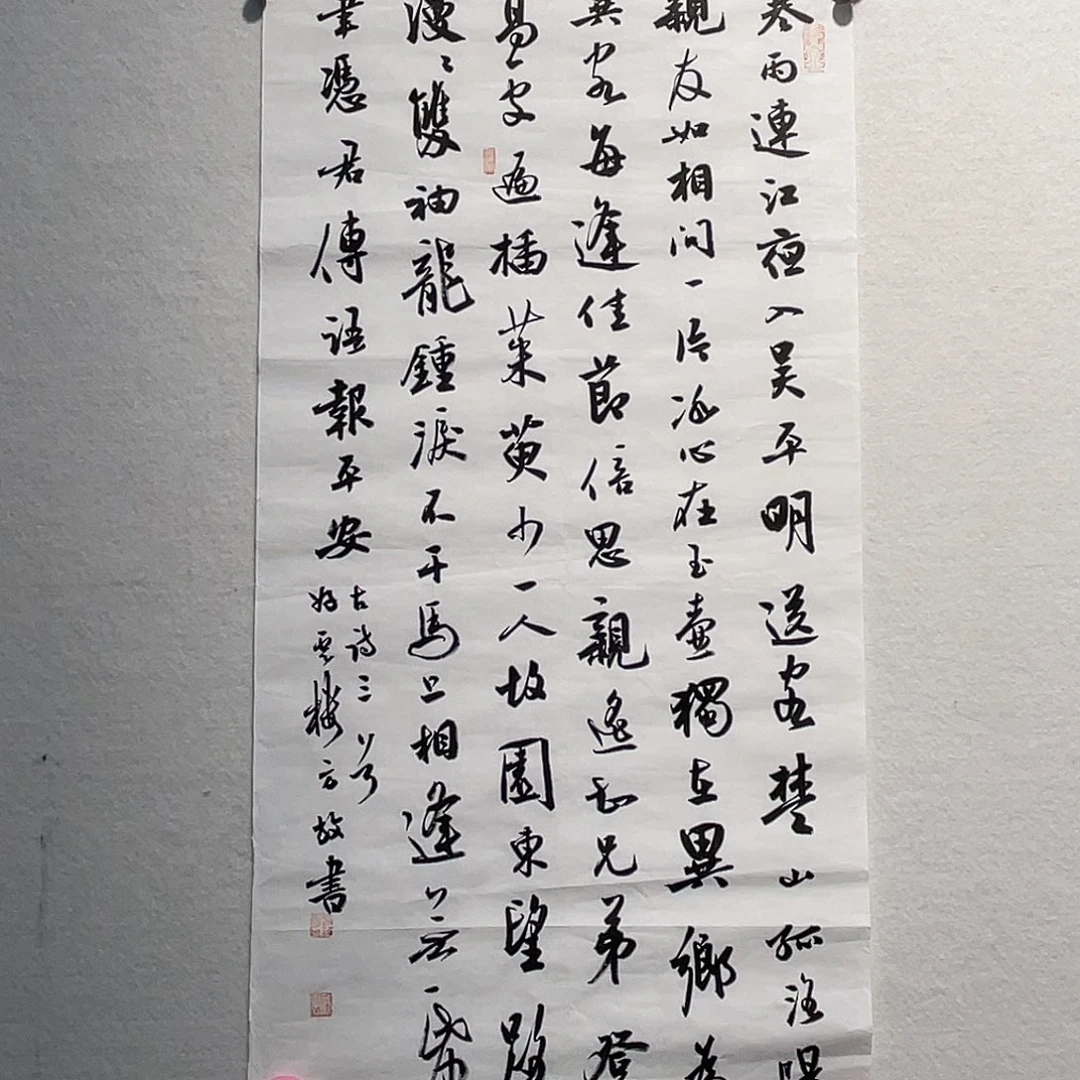 寒雨連江夜入吳平明送客楚山孤洛陽
親友如相問一片冰心在玉壺獨在異鄉為
異客每逢佳節倍思親遙知兄弟登
高處遍插茱萸少一人故園東望路
漫〻雙袖龍鍾淚不干馬上相逢無帋
筆憑君傳語報平安
古詩三首
樓方放書